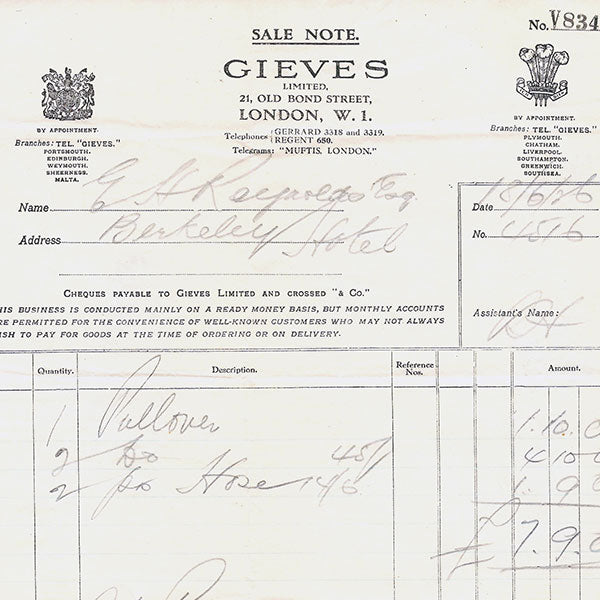 SALE NOTE.
No. V834
GIEVES
LIMITED,
21, OLD BOND STREET,
LONDON, W. 1.
Telephones {GERRARD 3318 and 3319.
REGENT 650.
Telegrams: "MUFTIS, LONDON."
BY APPOINTMENT.
Branches: TEL. "GIEVES."
PORTSMOUTH.
EDINBURGH.
WEYMOUTH.
SHEERNESS.
MALTA.
BY APPOINTMENT.
Branches: TEL. "GIEVES"
PLYMOUTH.
CHATHAM.
LIVERPOOL.
SOUTHAMPTON.
GREENWICH.
SOUTHSEA.
Name G H Reynolds Esq
Address Berkeley Hotel
Date 18/6/36
No. 4516
Assistant's Name:
CHEQUES PAYABLE TO GIEVES LIMITED AND CROSSED "& CO."
HIS BUSINESS IS CONDUCTED MAINLY ON A READY MONEY BASIS, BUT MONTHLY ACCOUNTS
RE PERMITTED FOR THE CONVENIENCE OF WELL-KNOWN CUSTOMERS WHO MAY NOT ALWAYS
ISH TO PAY FOR GOODS AT THE TIME OF ORDERING OR ON DELIVERY.
Quantity. Description. Reference Nos. Amount.
1 Pullover 1.10.0
2 Do 45/- 4 10 0
2 prs Hose 14/6 1 9 0
£ 7.9.0